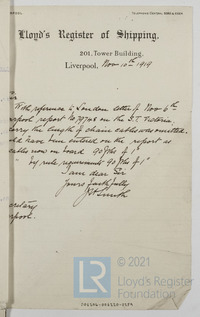 Lloyd's Register of Shipping.
201, Tower Building,
Liverpool, Nov 10th 1919
With reference to London letter of Nov 6th
report No 79708 on the S.T. Victoria
carry the length of chain cable was omitted
have been entered on the report as
cables now on board 90 fths of 1"
" by rule requirements 90 fths of 1"
I am dear Sir
Yours faithfully
© 2021
LR
Lloyd's Register
Foundation